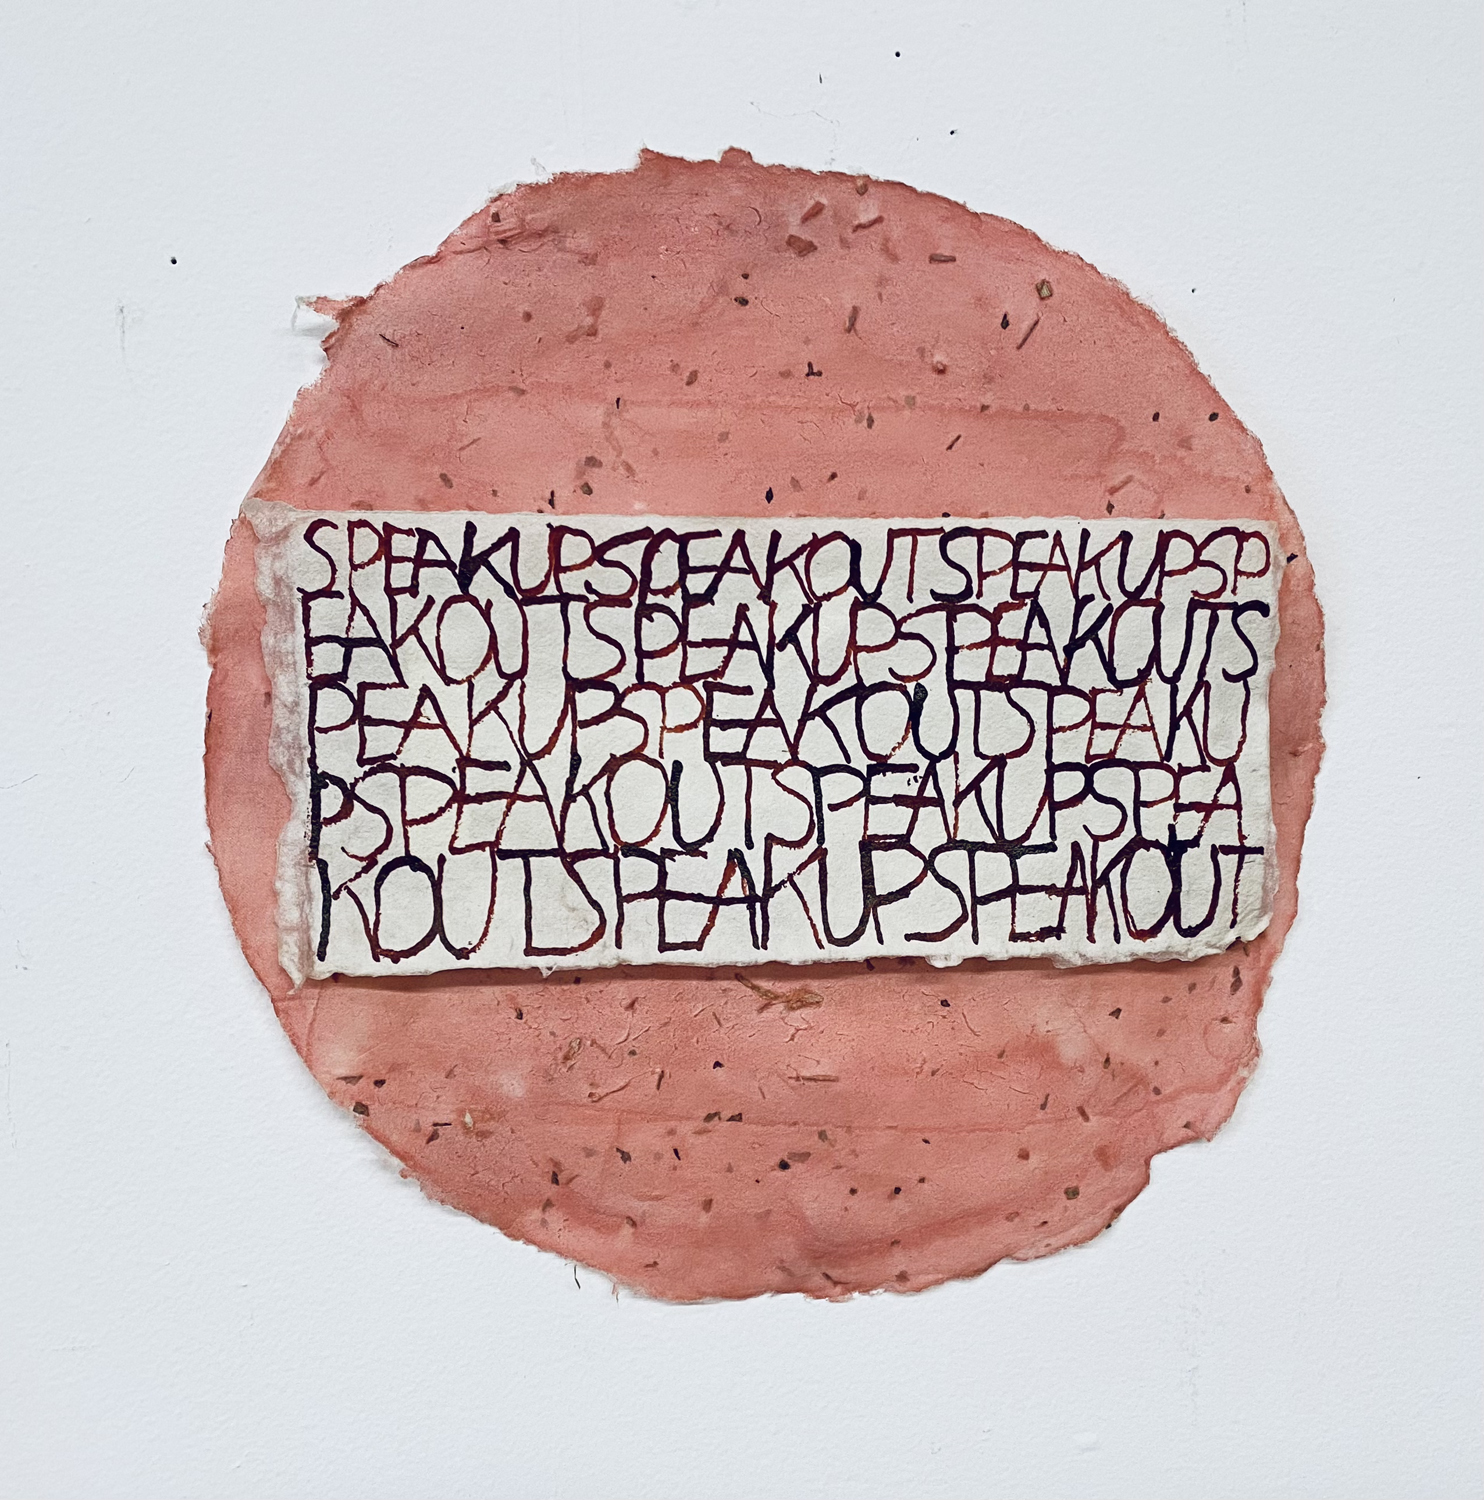 SPEAKUPSPEAKOUTSPEAKUPSP
EAKOUTSPEAKUPSPEAKOUTS
PEAKUPSPEAKOUTSPEAKU
PSPEAKOUTSPEAKUPSPEA
KOUTSPEAKUPSPEAKOUT